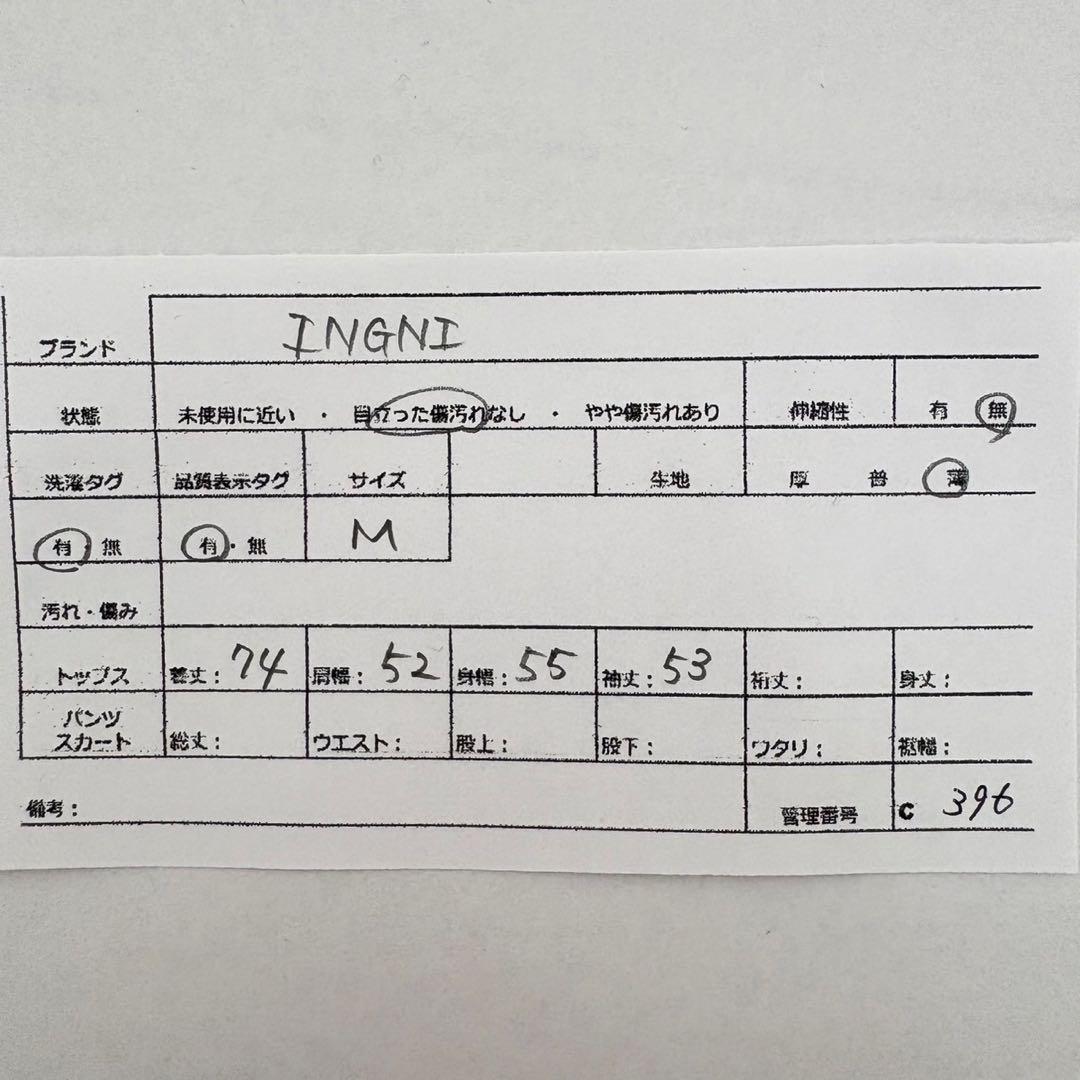 ブランド INGNI
状態 未使用に近い ・ 目立った傷汚れなし ・ やや傷汚れあり 伸縮性 有 無
洗濯タグ 品質表示タグ サイズ 生地 厚 普 薄
有・無 有・無 M
汚れ・傷み
トップス 着丈:74 肩幅:52 身幅:55 袖丈:53 裄丈: 身丈:
パンツ
スカート 総丈: ウエスト: 股上: 股下: ワタリ: 裾幅:
備考: 管理番号 C 396